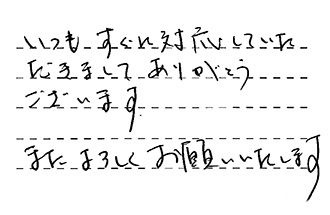 いつもすぐに対応していた
だきましてありがとう
ございます
またよろしくお願いいたします